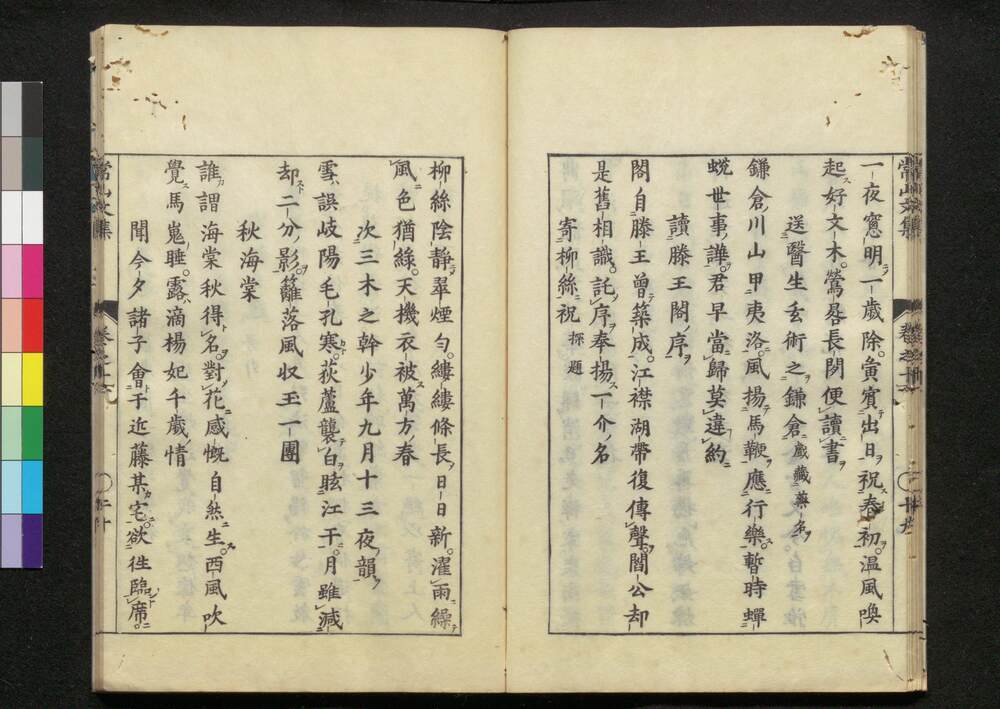 一夜窻明一歲除。寅賓出日祝春初。溫風喚
起好文木。鶯晷長閑便讀書
送醫生玄術之鎌倉 戲藏藥名
鎌倉川山甲夷洛。風揚馬鞭應行樂。暫時蟬
蛻世事譁。君早當歸莫違約
讀滕王閣序
閣自滕王曾築成。江襟湖帶復傳聲。閻公却
是舊相識。託序奉揚一介名
寄柳絲祝 探題
柳絲陰靜翠煙勻。縷縷條長日日新。濯雨繰
風色猶綠。天機衣被萬方春
次三木之幹少年九月十三夜韻
雪誤岐陽毛孔寒。荻蘆襲白眩江干。月雖減
却二分影。籬落風収玉一團
秋海棠
誰謂海棠秋得名。對花感慨自然生。西風吹
覺馬嵬睡。露滴楊妃千歲情
聞今夕諸子會于近藤某宅。欲往臨席。
常山文集
卷之十
二十